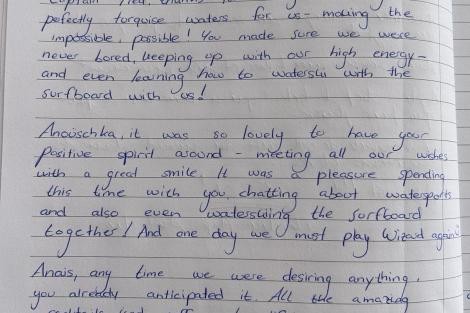 perfectly turquise waters for us - making the
impossible, possible! You made sure we were
never bored, keeping up with our high energy -
and even learning how to waterski with the
surfboard with us!
Anouschka, it was so lovely to have your
positive spirit around - meeting all our wishes
with a great smile. It was a pleasure spending
this time with you, chatting about watersports
and also even waterskiing the surfboard
together! And one day we must play Wizard again!
Anais, any time we were desiring anything,
you already anticipated it. All the amazing